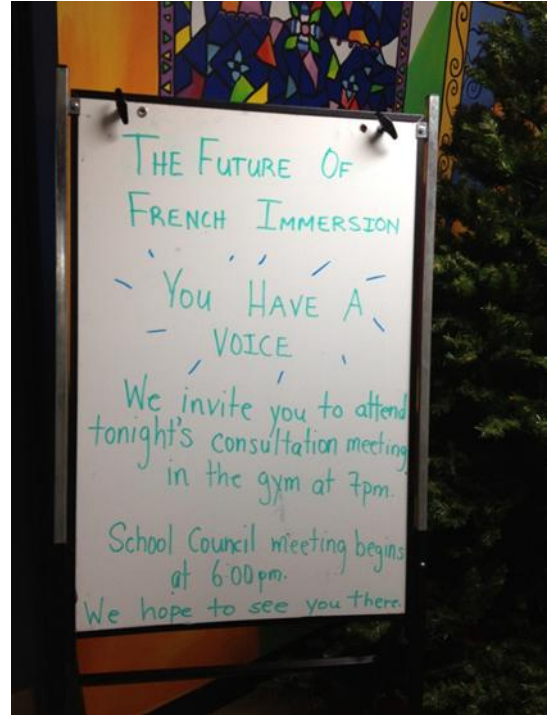 THE FUTURE OF
FRENCH IMMERSION
YOU HAVE A
VOICE
We invite you to attend
tonight's consultation meeting
in the gym at 7pm.
School Council meeting begins
at 6:00pm.
We hope to see you there.